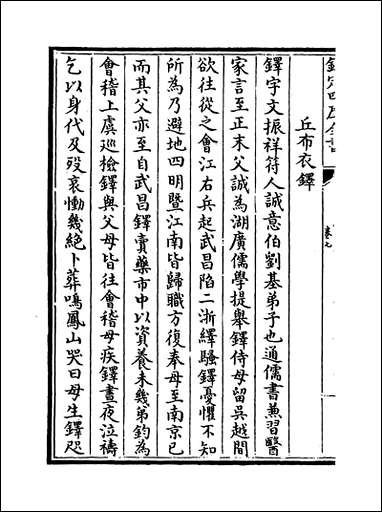 欽定四庫全書
卷九
丘布衣鐸
鐸字文振祥符人誠意伯劉基弟子也通儒書兼習醫
家言至正末父誠為湖廣儒學提舉鐸侍母留吳越間
欲往從之會江右兵起武昌陷二浙繹騷鐸憂懼不知
所為乃避地四明暨江南皆歸職方復奉母至南京已
而其父亦至自武昌鐸賣藥市中以資養未幾弟鈞為
會稽上虞巡檢鐸與父母皆往會稽母疾鐸晝夜泣禱
乞以身代及歿哀慟幾絶卜葬鳴鳳山哭曰母生鐸咫